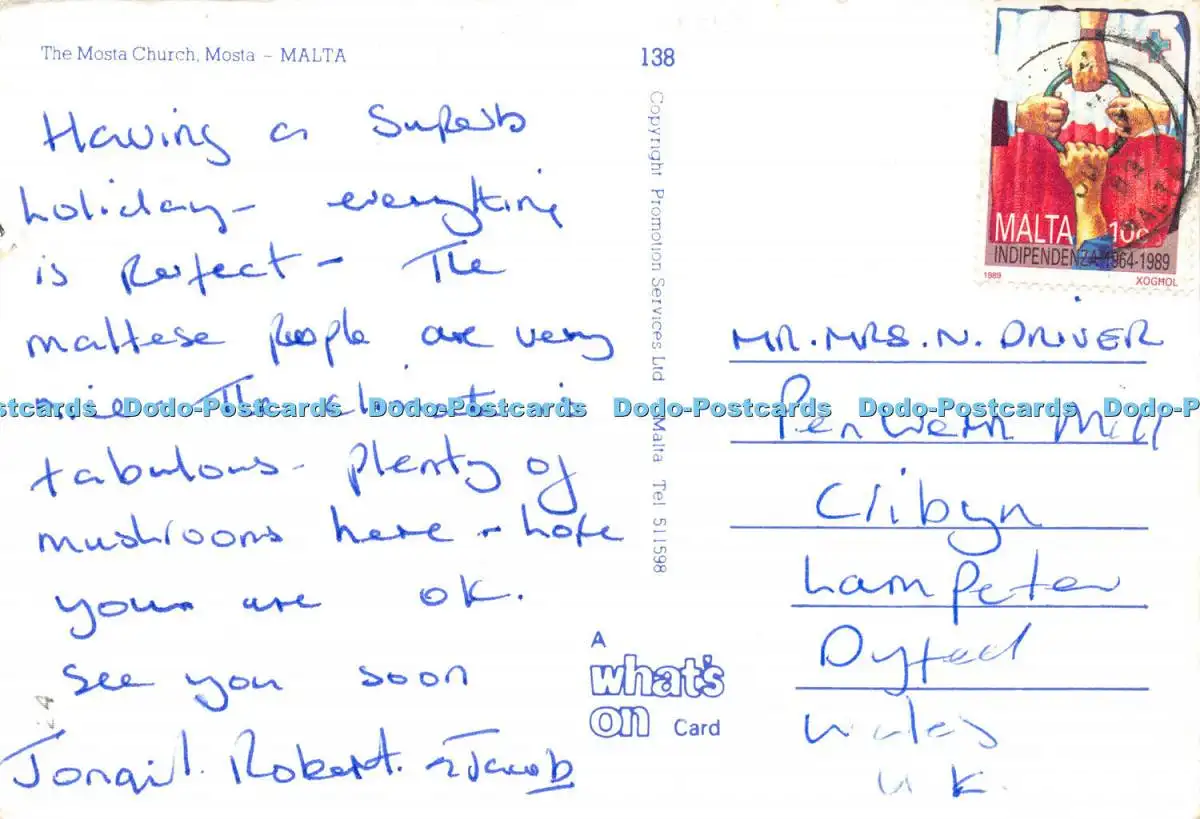 The Mosta Church, Mosta - MALTA
138
Having a Superb
holiday - everything
is Perfect - The
maltese people are very
nice - The climate is
fabulous - plenty of
mushrooms here - hope
your are OK.
See you soon
Robert. & Jacob
Copyright Promotion Services Ltd Malta Tel 511598
A
what's
on Card
MALTA 10c
INDIPENDENZA 1964-1989
1989 XOGHOL
MALTA
MR. MRS. N. DRIVER
Penwern Mill
Cribyn
Lampeter
Dyfed
Wales
U.K.
Dodo-Postcards Dodo-Postcards Dodo-Postcards Dodo-Postcards